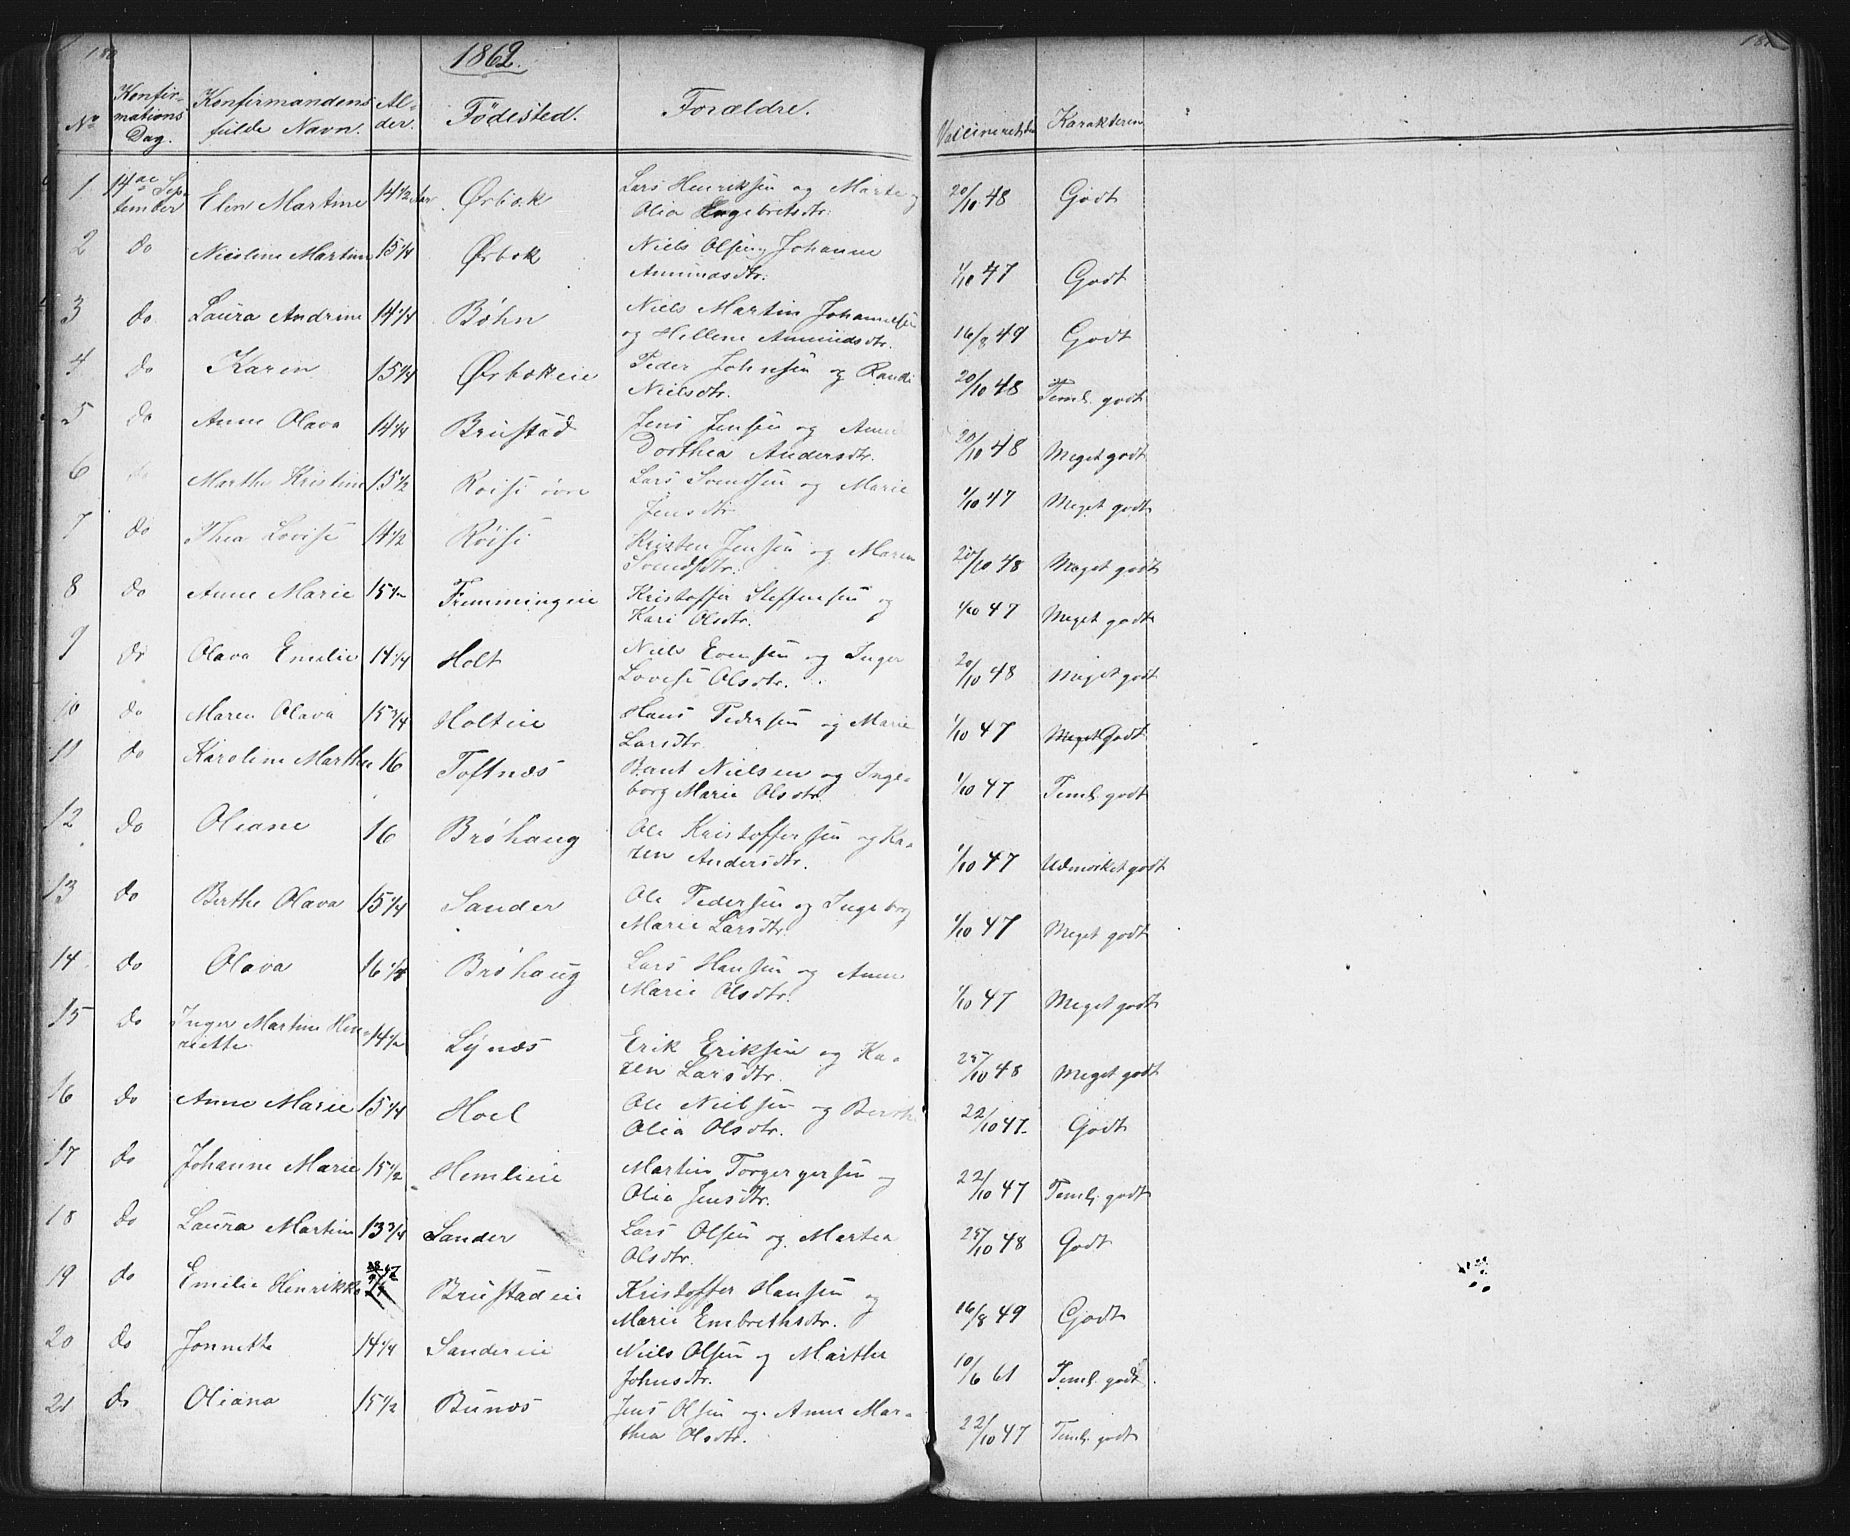 1862.
No Konfirmations Dag. Konfirmandens fulde Navn. Alder. Fødested. Forældre. Vaccineret den Karakteren
1 14de September Elen Martine 14 1/2 Aar Ørbæk Lars Henriksen og Marte Olia Engebretsdtr. 20/10 48 Godt
2 do Nicoline Martine 15 1/4 Ørbæk Niels Olsen og Johanne Amundsdtr. 1/10 47 Godt
3 do Laura Andrine 14 1/4 Bøhn Niels Martin Johannesen og Hellene Amundsdtr. 16/8 49 Godt
4 do Karin 15 1/4 Ørbækeie Peder Johnsen og Randi Nielsdtr. 20/10 48 Teml. godt
5 do Anne Olava 14 1/4 Brustad Jens Jensen og Anne Dorthea Andersdtr. 20/10 48 Meget godt
6 do Marthe Kristine 15 1/2 Røisi øvre Lars Svendsen og Marie Jensdtr. 1/10 47 Meget godt
7 do Thea Lovise 14 1/2 Røisi Kristen Jensen og Maren Svendsdtr. 20/10 48 Meget godt
8 do Anne Marie 15 1/2 Fremmingeie Kristoffer Steffensen og Kari Olsdtr. 1/10 47 Meget godt
9 do Olava Emilie 14 1/4 Holt Niels Evensen og Inger Lovise Olsdtr. 20/10 48 Meget godt
10 do Maren Olava 15 3/4 Holteie Hans Pedersen og Marie Larsdtr. 1/10 47 Meget Godt
11 do Karoline Marthea 16 Toftnæs Bent Nielsen og Ingeborg Marie Olsdtr. 1/10 47 Teml. godt
12 do Oliane 16 Brøhaug Ole Kristoffersen og Karen Andersdtr. 1/10 47 Udmærket godt
13 do Berthe Olava 15 1/4 Sander Ole Pedersen og Ingeborg Marie Larsdtr. 1/10 47 Meget godt
14 do Olava 16 1/4 Brøhaug Lars Hansen og Anne Marie Olsdtr. 1/10 47 Meget godt
15 do Inger Martine Henriette 14 1/2 Lynæs Erik Eriksen og Karen Larsdtr. 25/10 48 Meget godt
16 do Anne Marie 15 1/4 Hoel Ole Nielsen og Berthe Olia Olsdtr. 22/10 47 Godt
17 do Johanne Marie 15 1/2 Hemlieie Martin Torgergersen og Olia Jensdtr. 22/10 47 Teml. godt
18 do Laura Martine 13 3/4 Sander Lars Olsen og Marthea Olsdtr. 25/10 48 Godt
19 do Emilie Henrikke Brustadeie Kristoffer Hansen og Marie Embrethsdtr. 16/8 49 Godt
20 do Jonnette 14 1/4 Sandereie Niels Olsen og Marthe Johnsdtr. 10/6 61 Teml. godt
21 do Oliana 15 1/2 Bunæs Jens Olsen og Anne Marthea Olsdtr. 22/10 47 Teml. godt